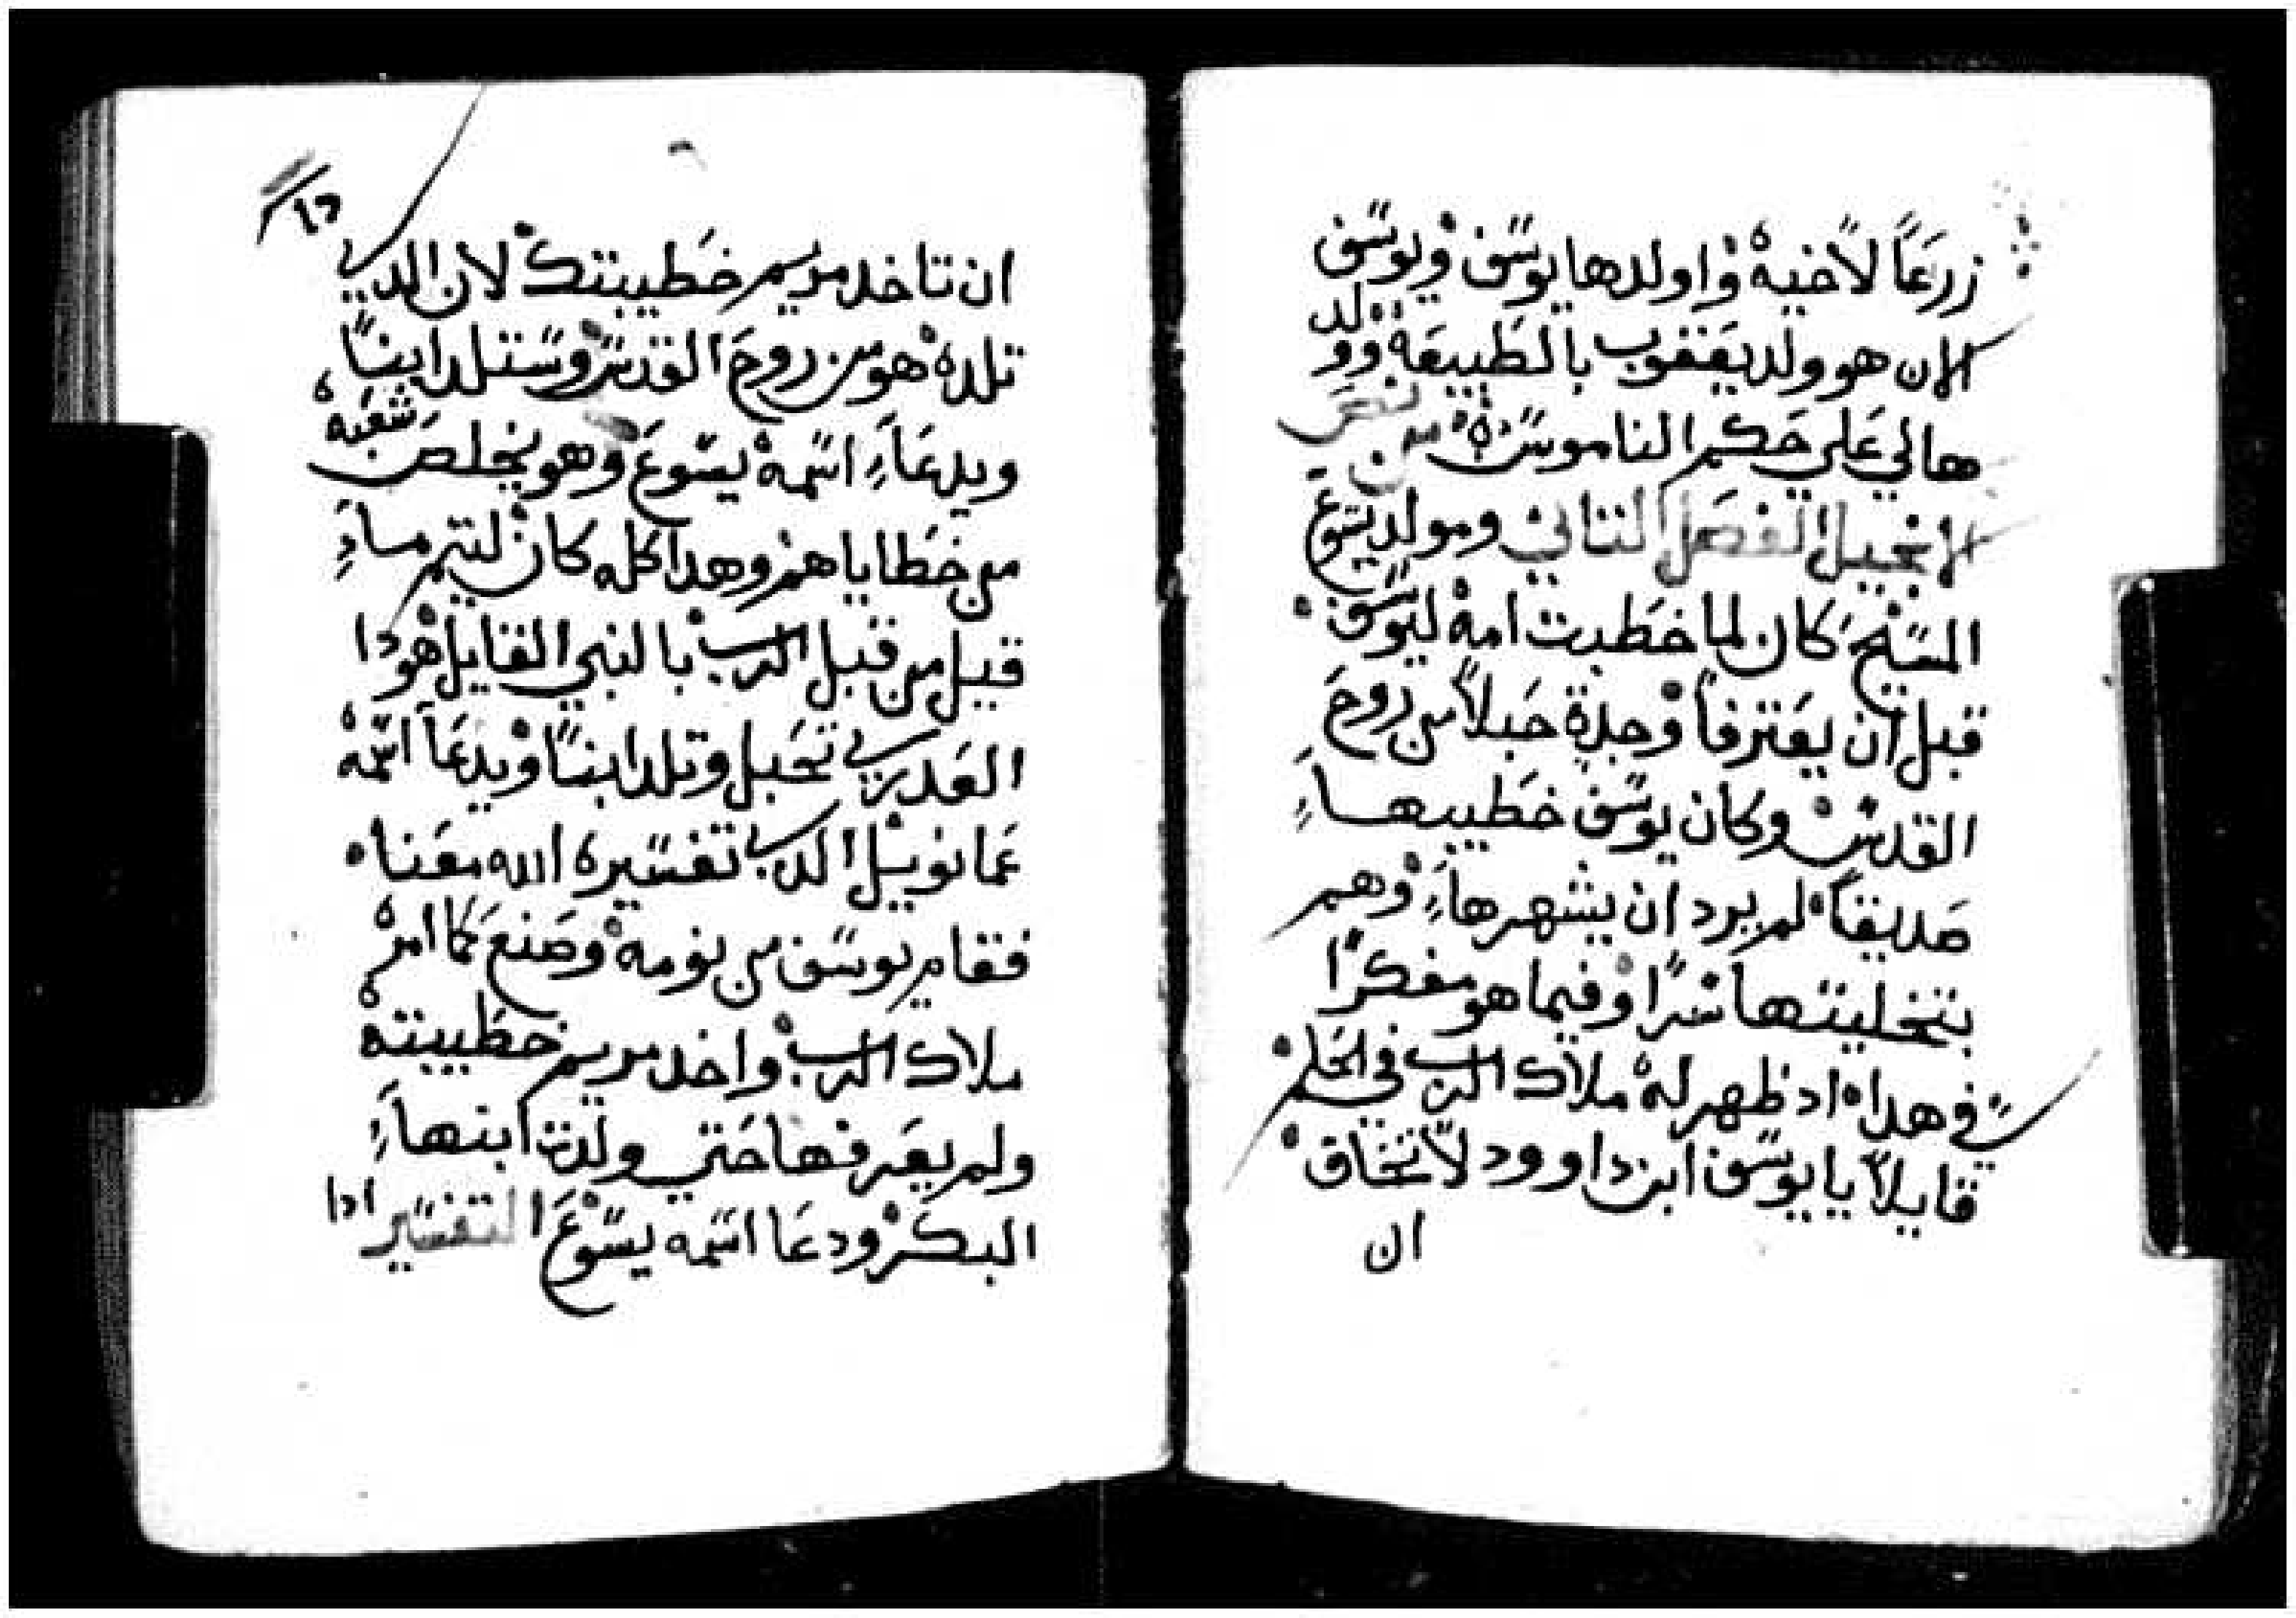 زرعًا لاخيه واولدها يوسف ويوسف
الان هو ولد يعقوب بالطبيعه وولد
هالي علي حكم الناموس نص من
الانجيل الفصل التاني ومولد يسوع
المسيح كان لما خطبت امه ليوسف
قبل ان يعترفا وجدة حبلاً من روح
القدس وكان يوسف خطيبها
صديقاً لم يرد ان يشهرها وهم
بتخليتها سرًا وفيما هو مفكرًا
في هدا اد ظهر له ملاك الرب في الحلم
قايلاً يا يوسف ابن داوود لا تخاف
ان
ان تاخد مريم خطيبتك لان الدي
تلده هو من روح القدس وستلد ابنًا
ويدعا اسمه يسوع وهو يخلص شعبه
من خطاياهم وهدا كله كان ليتم ما
قيل من قبل الرب بالنبي القايل هودا
العدري تحبل وتلد ابنًا ويدعا اسمه
عمانوييل الدي تفسيره الله معنا
فقام يوسف من نومه وصنع كما امره
ملاك الرب واخد مريم خطيبته
ولم يعرفها حتي ولدت ابنها
البكر ودعا اسمه يسوع التفسير ادا